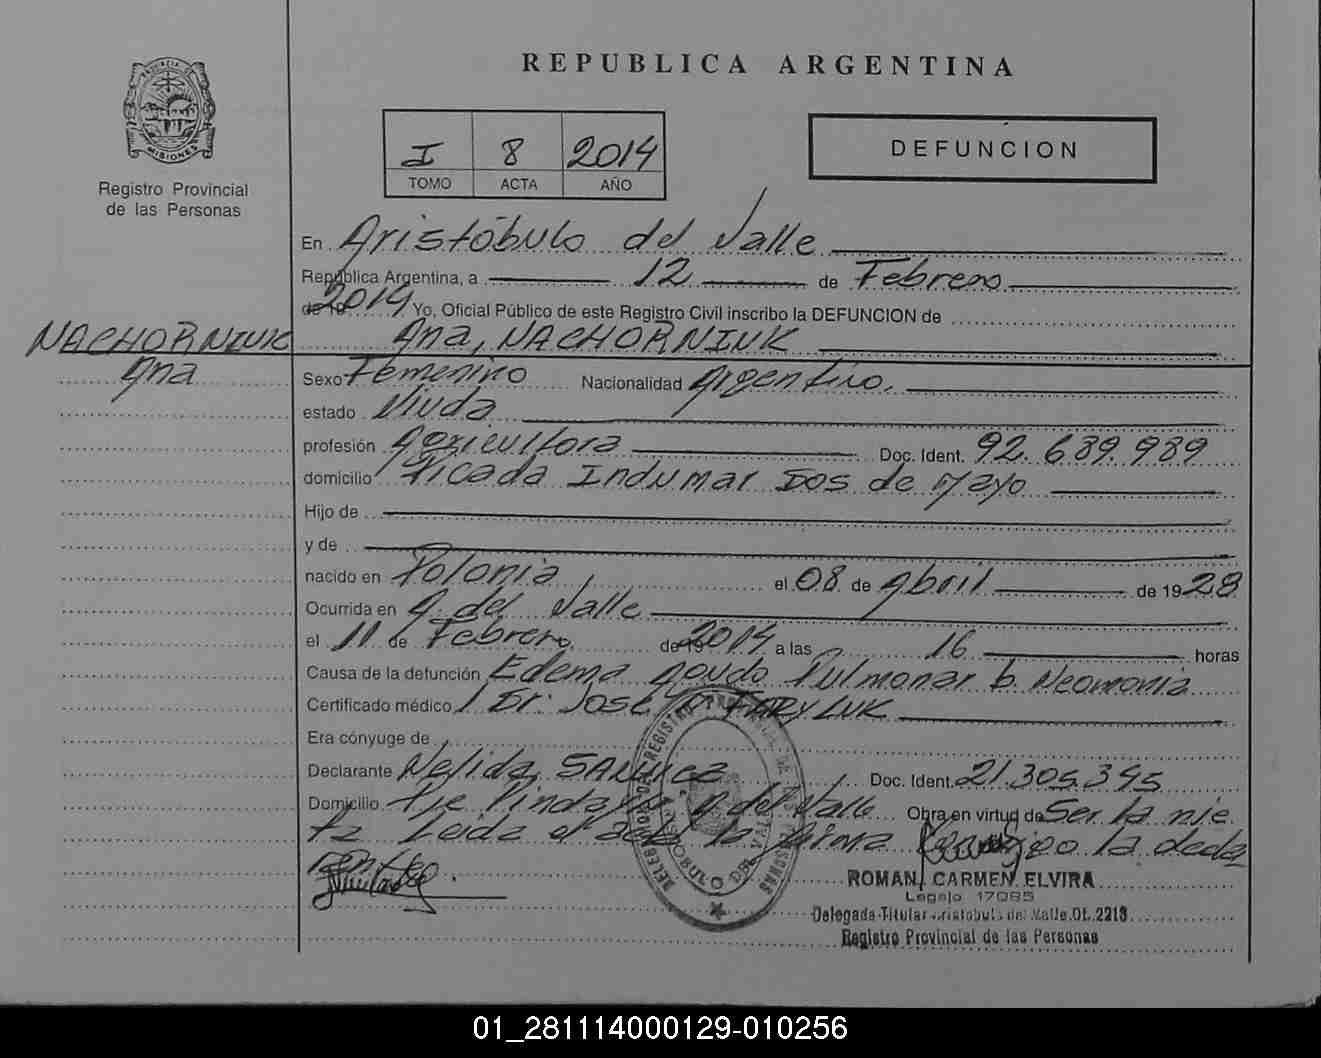 REPUBLICA ARGENTINA
PROVINCIA DE
MISIONES
Registro Provincial
de las Personas
I 8 2014
TOMO ACTA AÑO
DEFUNCION
En Aristóbulo del Valle
República Argentina, a 12 de Febrero
de 19 2014 Yo, Oficial Público de este Registro Civil inscribo la DEFUNCION de
NACHORNIUK Ana, NACHORNIUK
Ana
Sexo Femenino Nacionalidad Argentino.
estado Viuda
profesión Agricultora Doc. Ident. 92.689.989
domicilio Picada Indumar Dos de Mayo
Hijo de
y de
nacido en Polonia, el 08 de Abril de 1928
Ocurrida en A. del Valle
el 11 de Febrero de 19 2014 a las 16 horas
Causa de la defunción Edema agudo Pulmonar b. Neomonia
Certificado médico Dr. José
Era cónyuge de
Declarante Nelida, Doc. Ident. 21.305.395
Domicilio A. del Valle Obra en virtud de Ser la nie
ta Leida el acta la firma la decla
rante
DELEGACION DEL REGISTRO PROVINCIAL DE LAS PERSONAS
ARISTOBULO DEL VALLE
ROMAN, CARMEN ELVIRA
Legajo 17085
Delegada Titular Aristobulo del Valle DL. 2213
Registro Provincial de las Personas
01_281114000129-010256